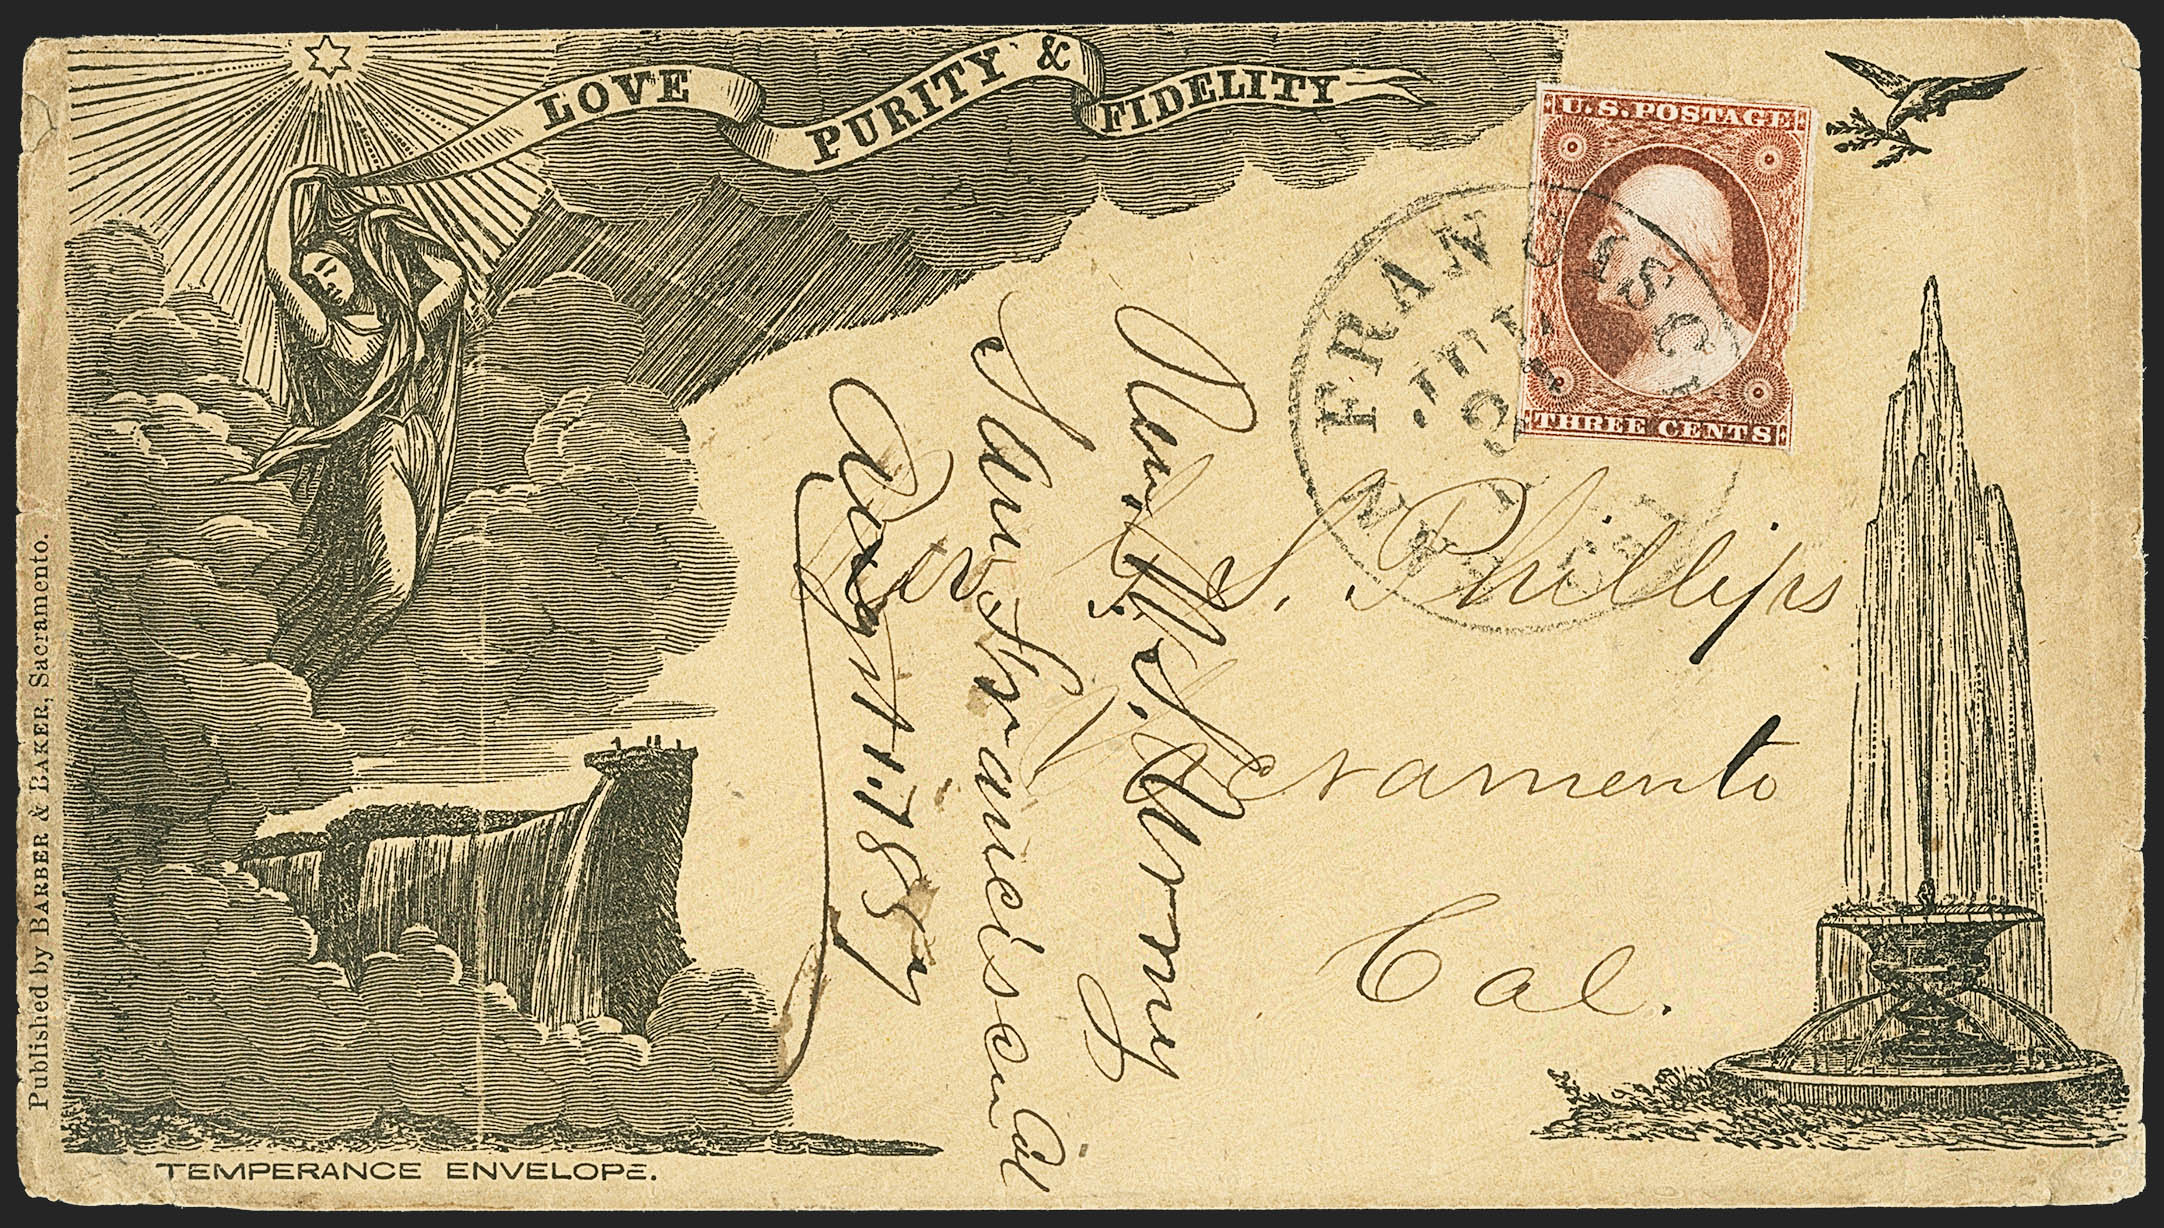 LOVE PURITY & FIDELITY
U.S. POSTAGE
THREE CENTS
FRANCISCO
JUL
S. Phillips
Sacramento
Cal.
San Francisco Cal
1857
Published by BARBER & BAKER, Sacramento.
TEMPERANCE ENVELOPE.